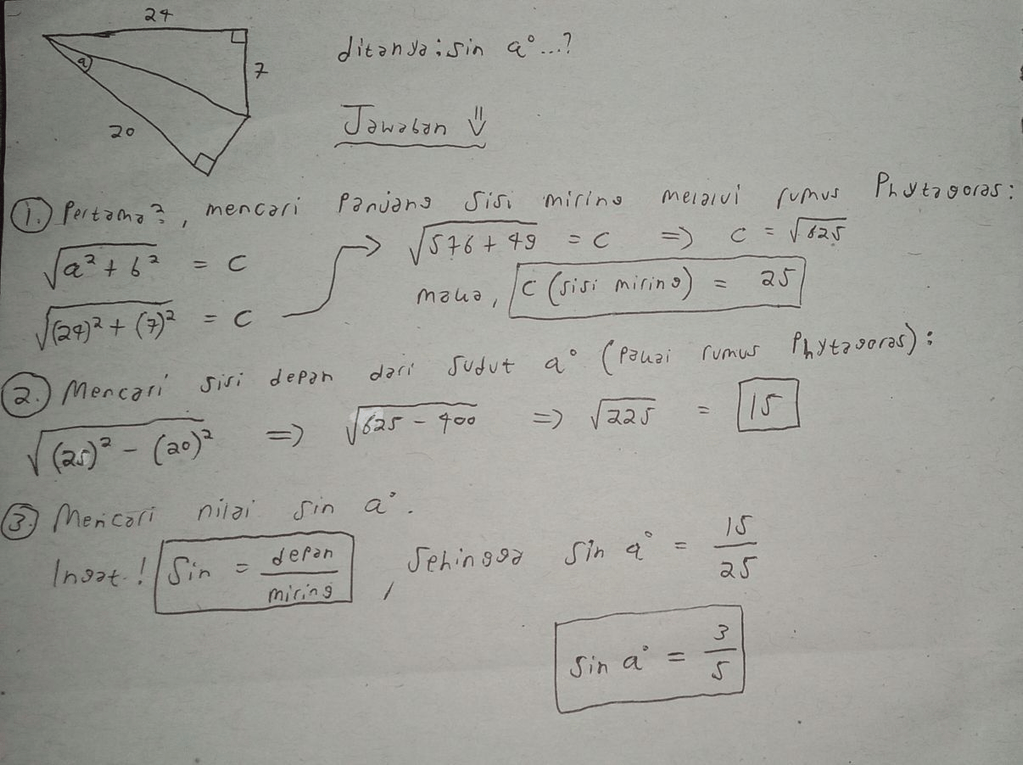 24
ditanya : sin a° ...?
7
a
20
Jawaban ⇓
1. Pertama², mencari panjang sisi miring melalui rumus Phytagoras:
√a² + b² = c
√(24)² + (7)² = c → √576 + 49 = c ⇒ c = √625
maka, c (sisi miring) = 25
2. Mencari sisi depan dari sudut a° (pakai rumus Phytagoras) :
√(25)² - (20)² ⇒ √625 - 400 ⇒ √225 = 15
3. Mencari nilai sin a°.
Ingat! Sin = depan/miring, Sehingga sin a° = 15/25
sin a° = 3/5